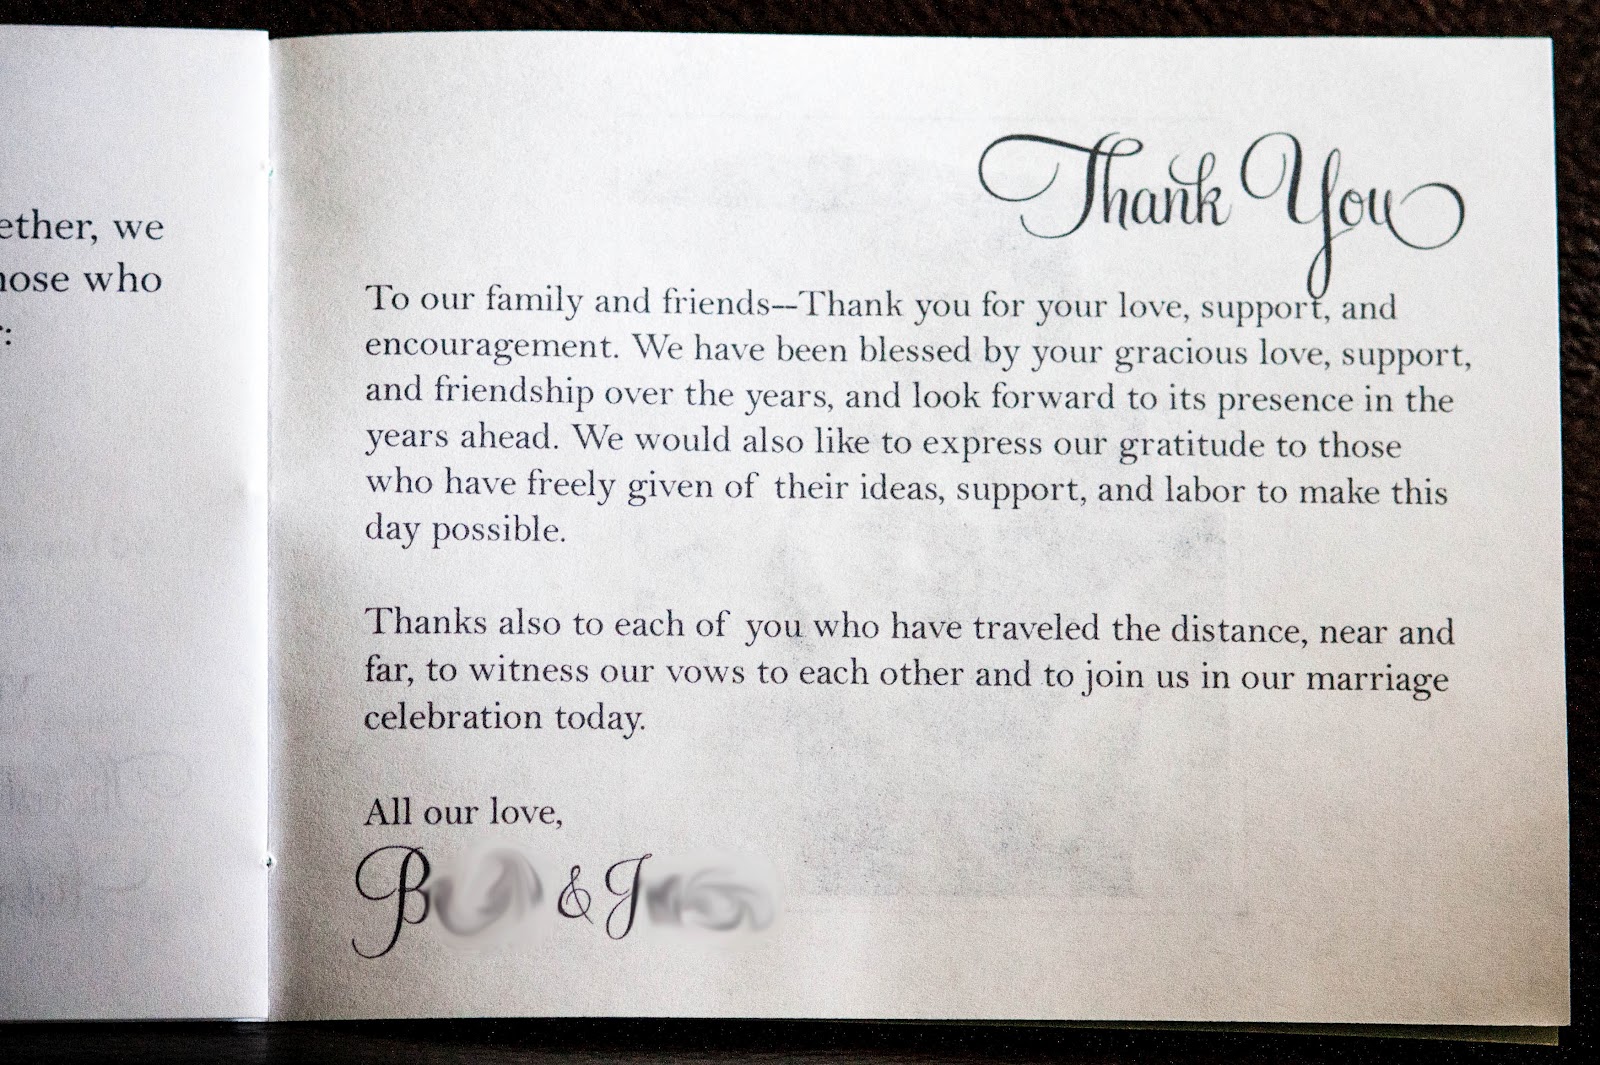 ether, we
who
Thank You
To our family and friends--Thank you for your love, support, and
encouragement. We have been blessed by your gracious love, support,
and friendship over the years, and look forward to its presence in the
years ahead. We would also like to express our gratitude to those
who have freely given of their ideas, support, and labor to make this
day possible.
Thanks also to each of you who have traveled the distance, near and
far, to witness our vows to each other and to join us in our marriage
celebration today.
All our love,
B & J